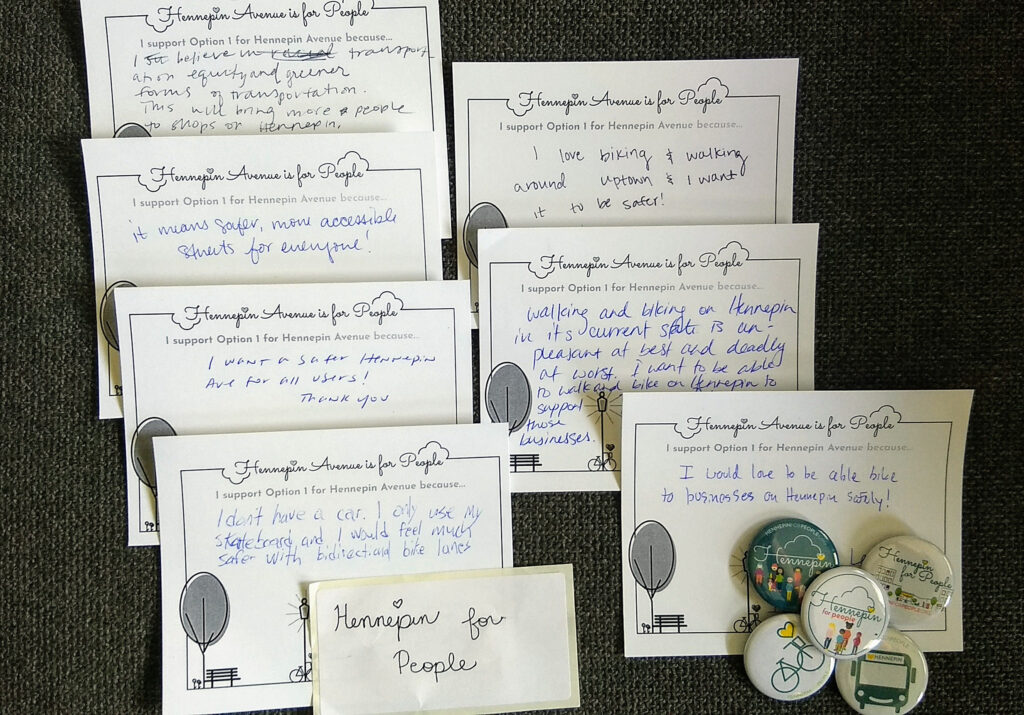 Hennepin Avenue is for People
I support Option 1 for Hennepin Avenue because...
I believe in transport
ation equity and greener
forms of transportation.
This will bring more people
to shops on Hennepin.
Hennepin Avenue is for People
I support Option 1 for Hennepin Avenue because...
it means safer, more accessible
streets for everyone!
Hennepin Avenue is for People
I support Option 1 for Hennepin Avenue because...
I want a safer Hennepin
Ave for all users!
Thank you
Hennepin Avenue is for People
I support Option 1 for Hennepin Avenue because...
I don't have a car. I only use my
skateboard and I would feel much
safer with bidirectional bike lanes
Hennepin for
People
Hennepin Avenue is for People
I support Option 1 for Hennepin Avenue because...
I love biking & walking
around uptown & I want
it to be safer!
Hennepin Avenue is for People
I support Option 1 for Hennepin Avenue because...
walking and biking on Hennepin
in it's current state is un-
pleasant at best and deadly
at worst. I want to be able
to walk and bike on Hennepin to
support
those
businesses.
Hennepin Avenue is for People
I support Option 1 for Hennepin Avenue because...
I would love to be able bike
to businesses on Hennepin safely!
Hennepin
Hennepin
for People
Hennepin
for people
HENNEPIN